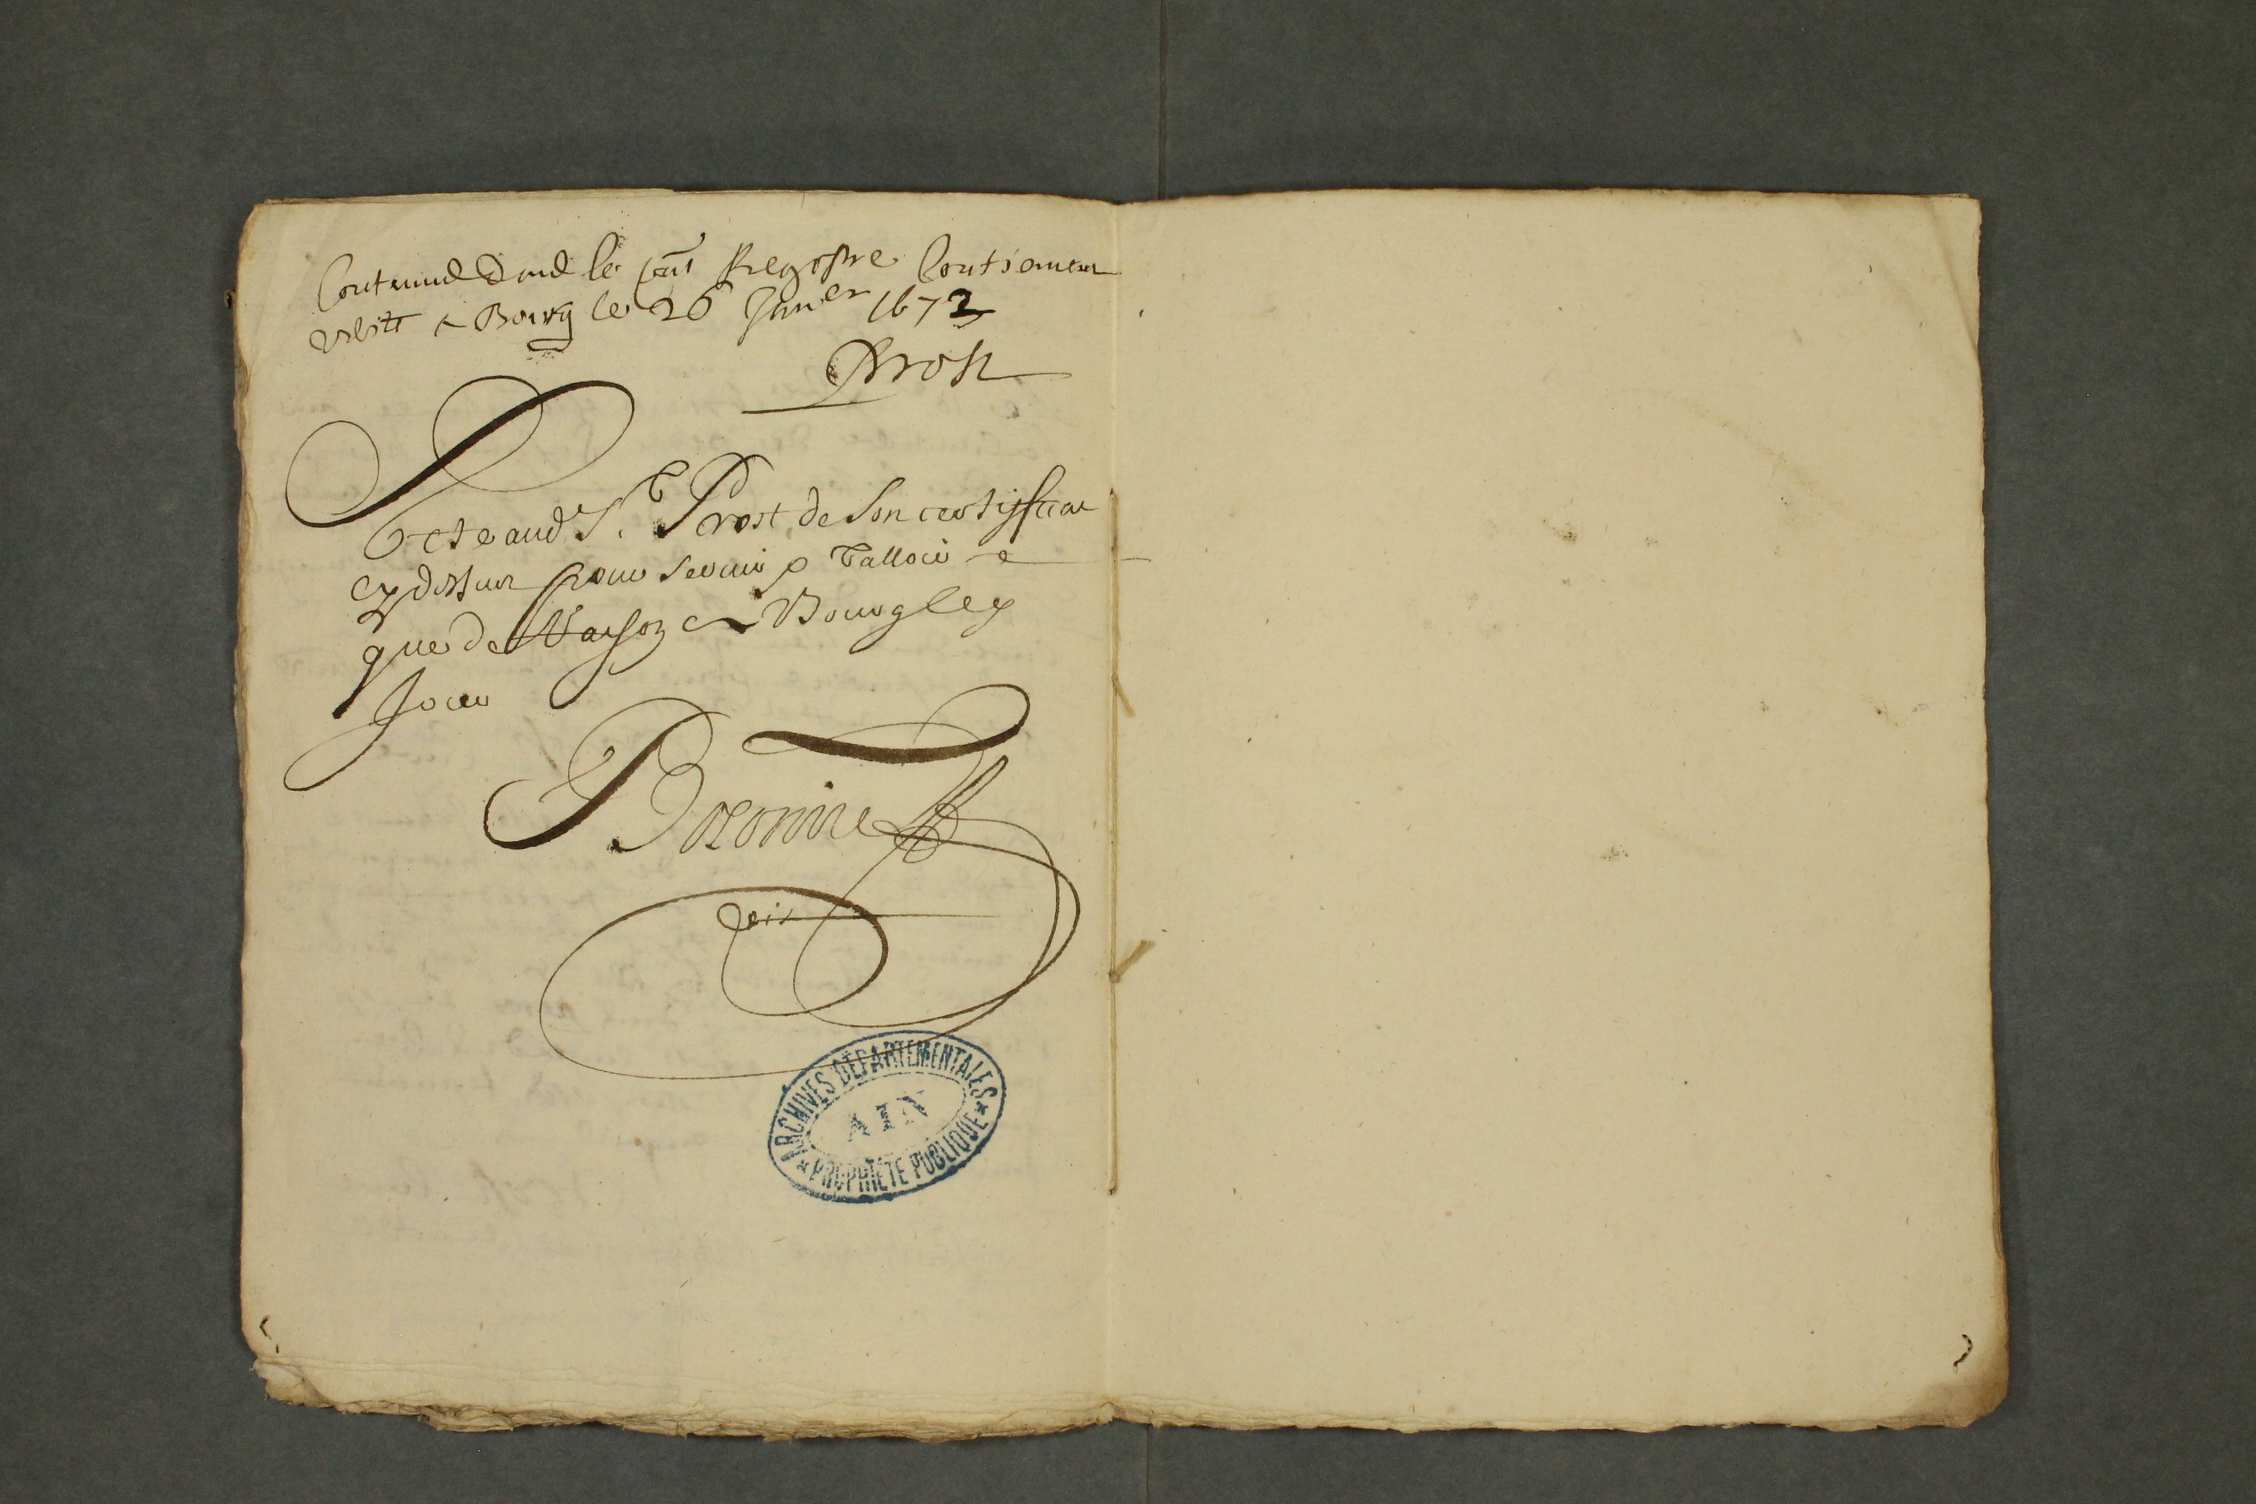 Contenud dand le pnt Regestre Contienent
a Bourg le 26 Janer 1673
Prost
Acte aud Sr. Prost de son certifficat
cy dessus pour servir & valloir e
que de Rayson a Bourg le p
Jour
ARCHIVES DEPARTEMENTALES
AIN
PROPRIETE PUBLIQUE